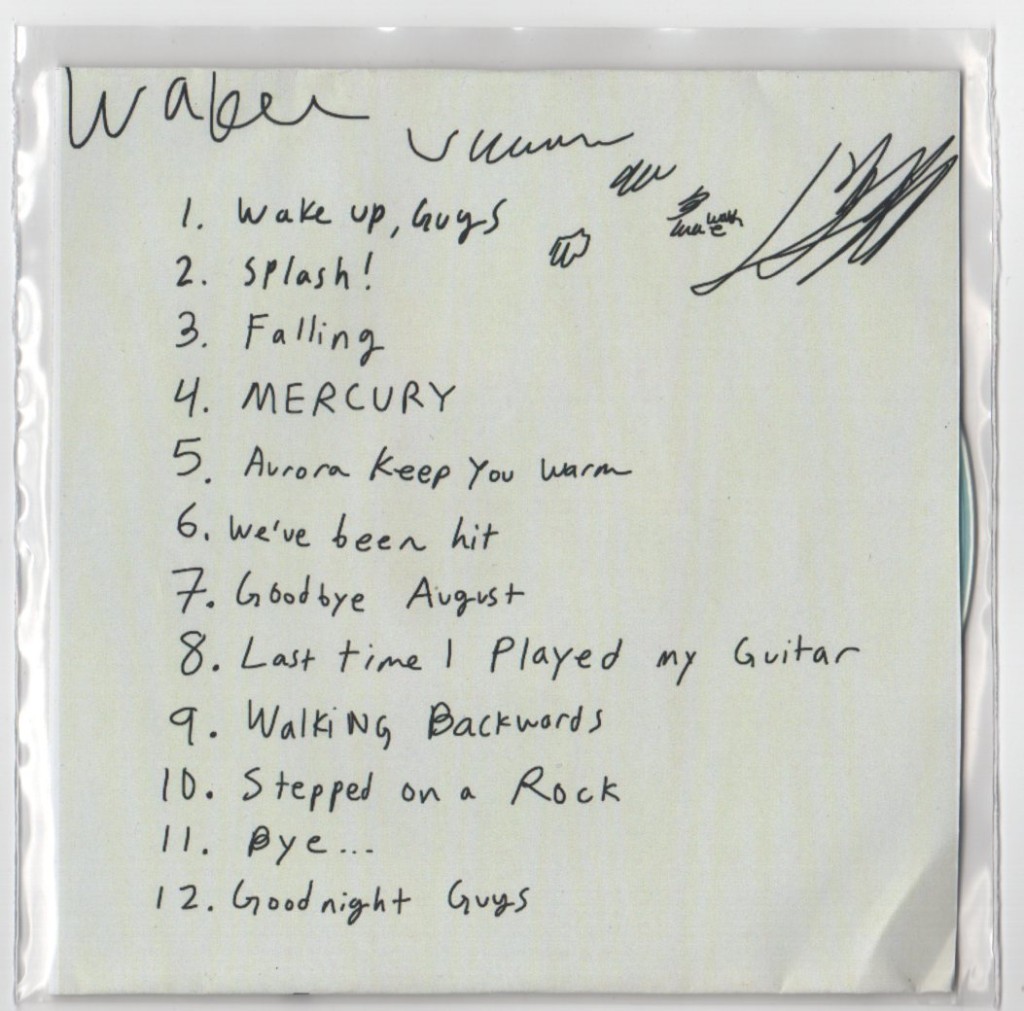 1. Wake up, Guys
2. Splash!
3. Falling
4. MERCURY
5. Aurora Keep You Warm
6. We've been hit
7. Goodbye August
8. Last time I Played my Guitar
9. Walking Backwards
10. Stepped on a Rock
11. Bye...
12. Goodnight Guys